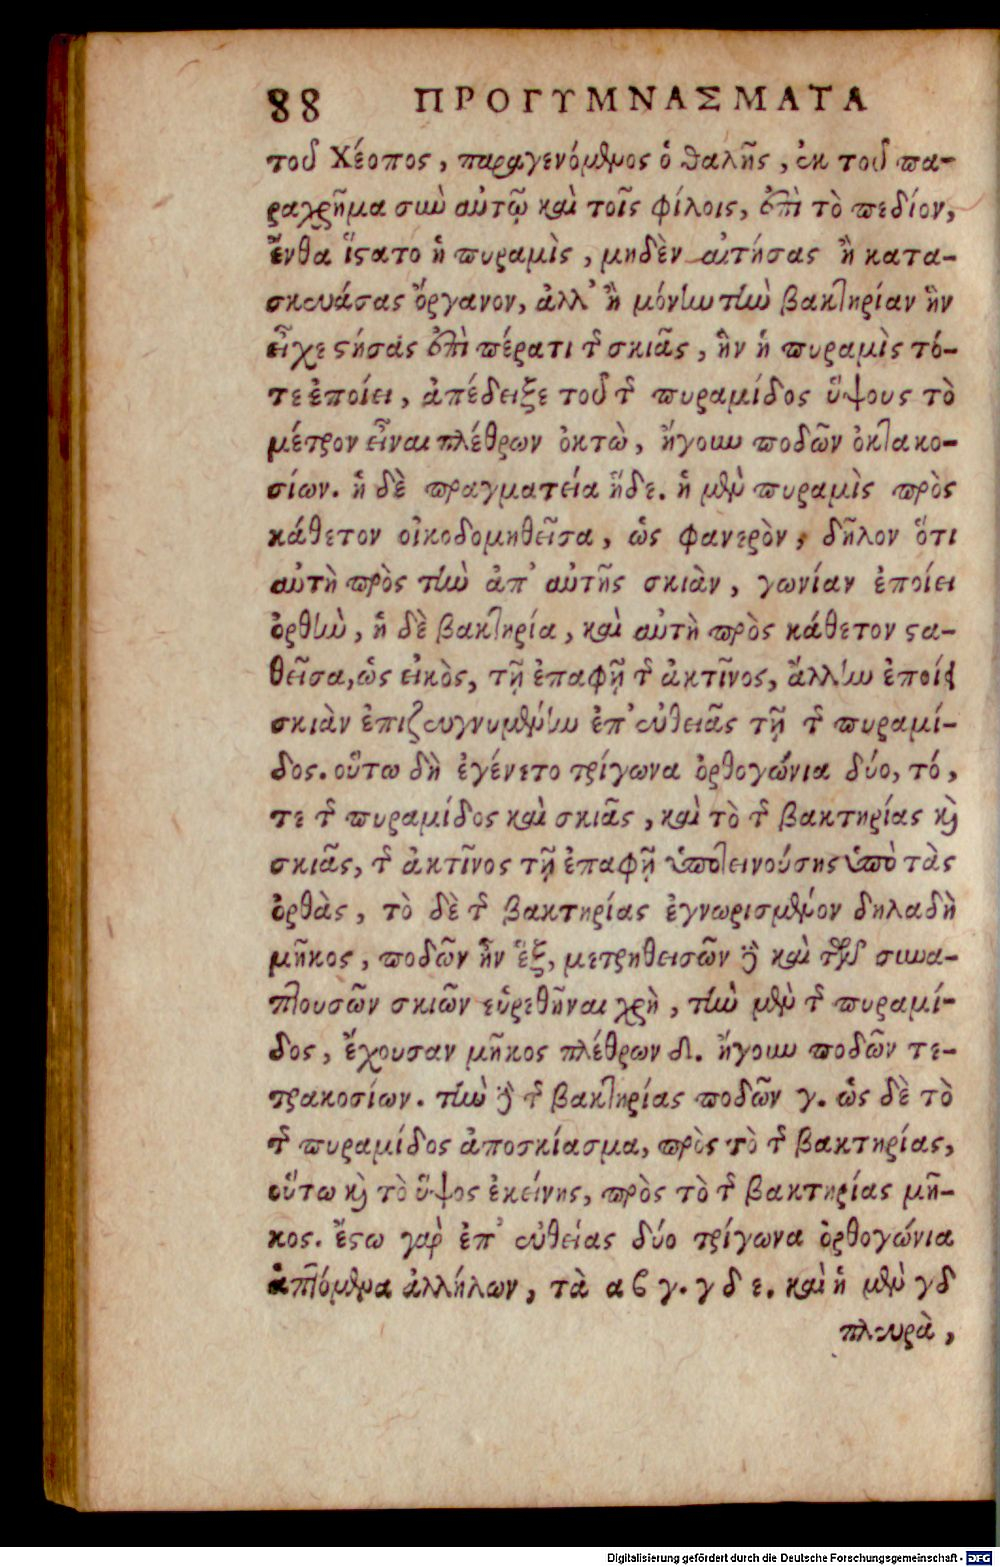 88 ΠΡΟΓΥΜΝΑΣΜΑΤΑ
τοῦ Χέοπος, παραγενόμενος ὁ Θαλῆς, ἐκ τοῦ πα-
ραχρῆμα σὺν αὐτῷ καὶ τοῖς φίλοις, ἐπὶ τὸ πεδίον,
ἔνθα ἵστατο ἡ πυραμὶς, μηδὲν αἰτήσας ἢ κατα-
σκευάσας ὄργανον, ἀλλ' ἢ μόνην τὴν βακτηρίαν ἣν
εἶχε στήσας ἐπὶ πέρατι τῆς σκιᾶς, ἣν ἡ πυραμὶς τό-
τε ἐποίει, ἀπέδειξε τοῦ τῆς πυραμίδος ὕψους τὸ
μέτρον εἶναι πλέθρων ὀκτὼ, ἤγουν ποδῶν ὀκτακο-
σίων. ἡ δὲ πραγματεία ἥδε. ἡ μὲν πυραμὶς πρὸς
κάθετον οἰκοδομηθεῖσα, ὡς φανερὸν, δῆλον ὅτι
αὐτὴ πρὸς τὴν ἀπ' αὐτῆς σκιὰν, γωνίαν ἐποίει
ὀρθὴν, ἡ δὲ βακτηρία, καὶ αὐτὴ πρὸς κάθετον στα-
θεῖσα, ὡς εἰκὸς, τῇ ἐπαφῇ τῆς ἀκτῖνος, ἄλλην ἐποίει
σκιὰν ἐπιζευγνυμένην ἐπ' εὐθείας τῇ τῆς πυραμί-
δος. οὕτω δὴ ἐγένετο τρίγωνα ὀρθογώνια δύο, τό,
τε τῆς πυραμίδος καὶ σκιᾶς, καὶ τὸ τῆς βακτηρίας καὶ
σκιᾶς, τῆς ἀκτῖνος τῇ ἐπαφῇ ὑποτεινούσης ὑπὸ τὰς
ὀρθὰς, τὸ δὲ τῆς βακτηρίας ἐγνωρισμένον δηλαδὴ
μῆκος, ποδῶν ἦν ἓξ, μετρηθεισῶν δὲ καὶ τῶν συνα-
πτουσῶν σκιῶν εὑρεθῆναι χρὴ, τὴν μὲν τῆς πυραμί-
δος, ἔχουσαν μῆκος πλέθρων δ. ἤγουν ποδῶν τε-
τρακοσίων. τὴν δὲ τῆς βακτηρίας ποδῶν γ. ὡς δὲ τὸ
τῆς πυραμίδος ἀποσκίασμα, πρὸς τὸ τῆς βακτηρίας,
οὕτω καὶ τὸ ὕψος ἐκείνης, πρὸς τὸ τῆς βακτηρίας μῆ-
κος. ἔστω γὰρ ἐπ' εὐθείας δύο τρίγωνα ὀρθογώνια
ἁπτόμενα ἀλλήλων, τὰ α β γ. γ δ ε. καὶ ἡ μὲν γδ
πλευρὰ,
Digitalisierung gefördert durch die Deutsche Forschungsgemeinschaft - DFG